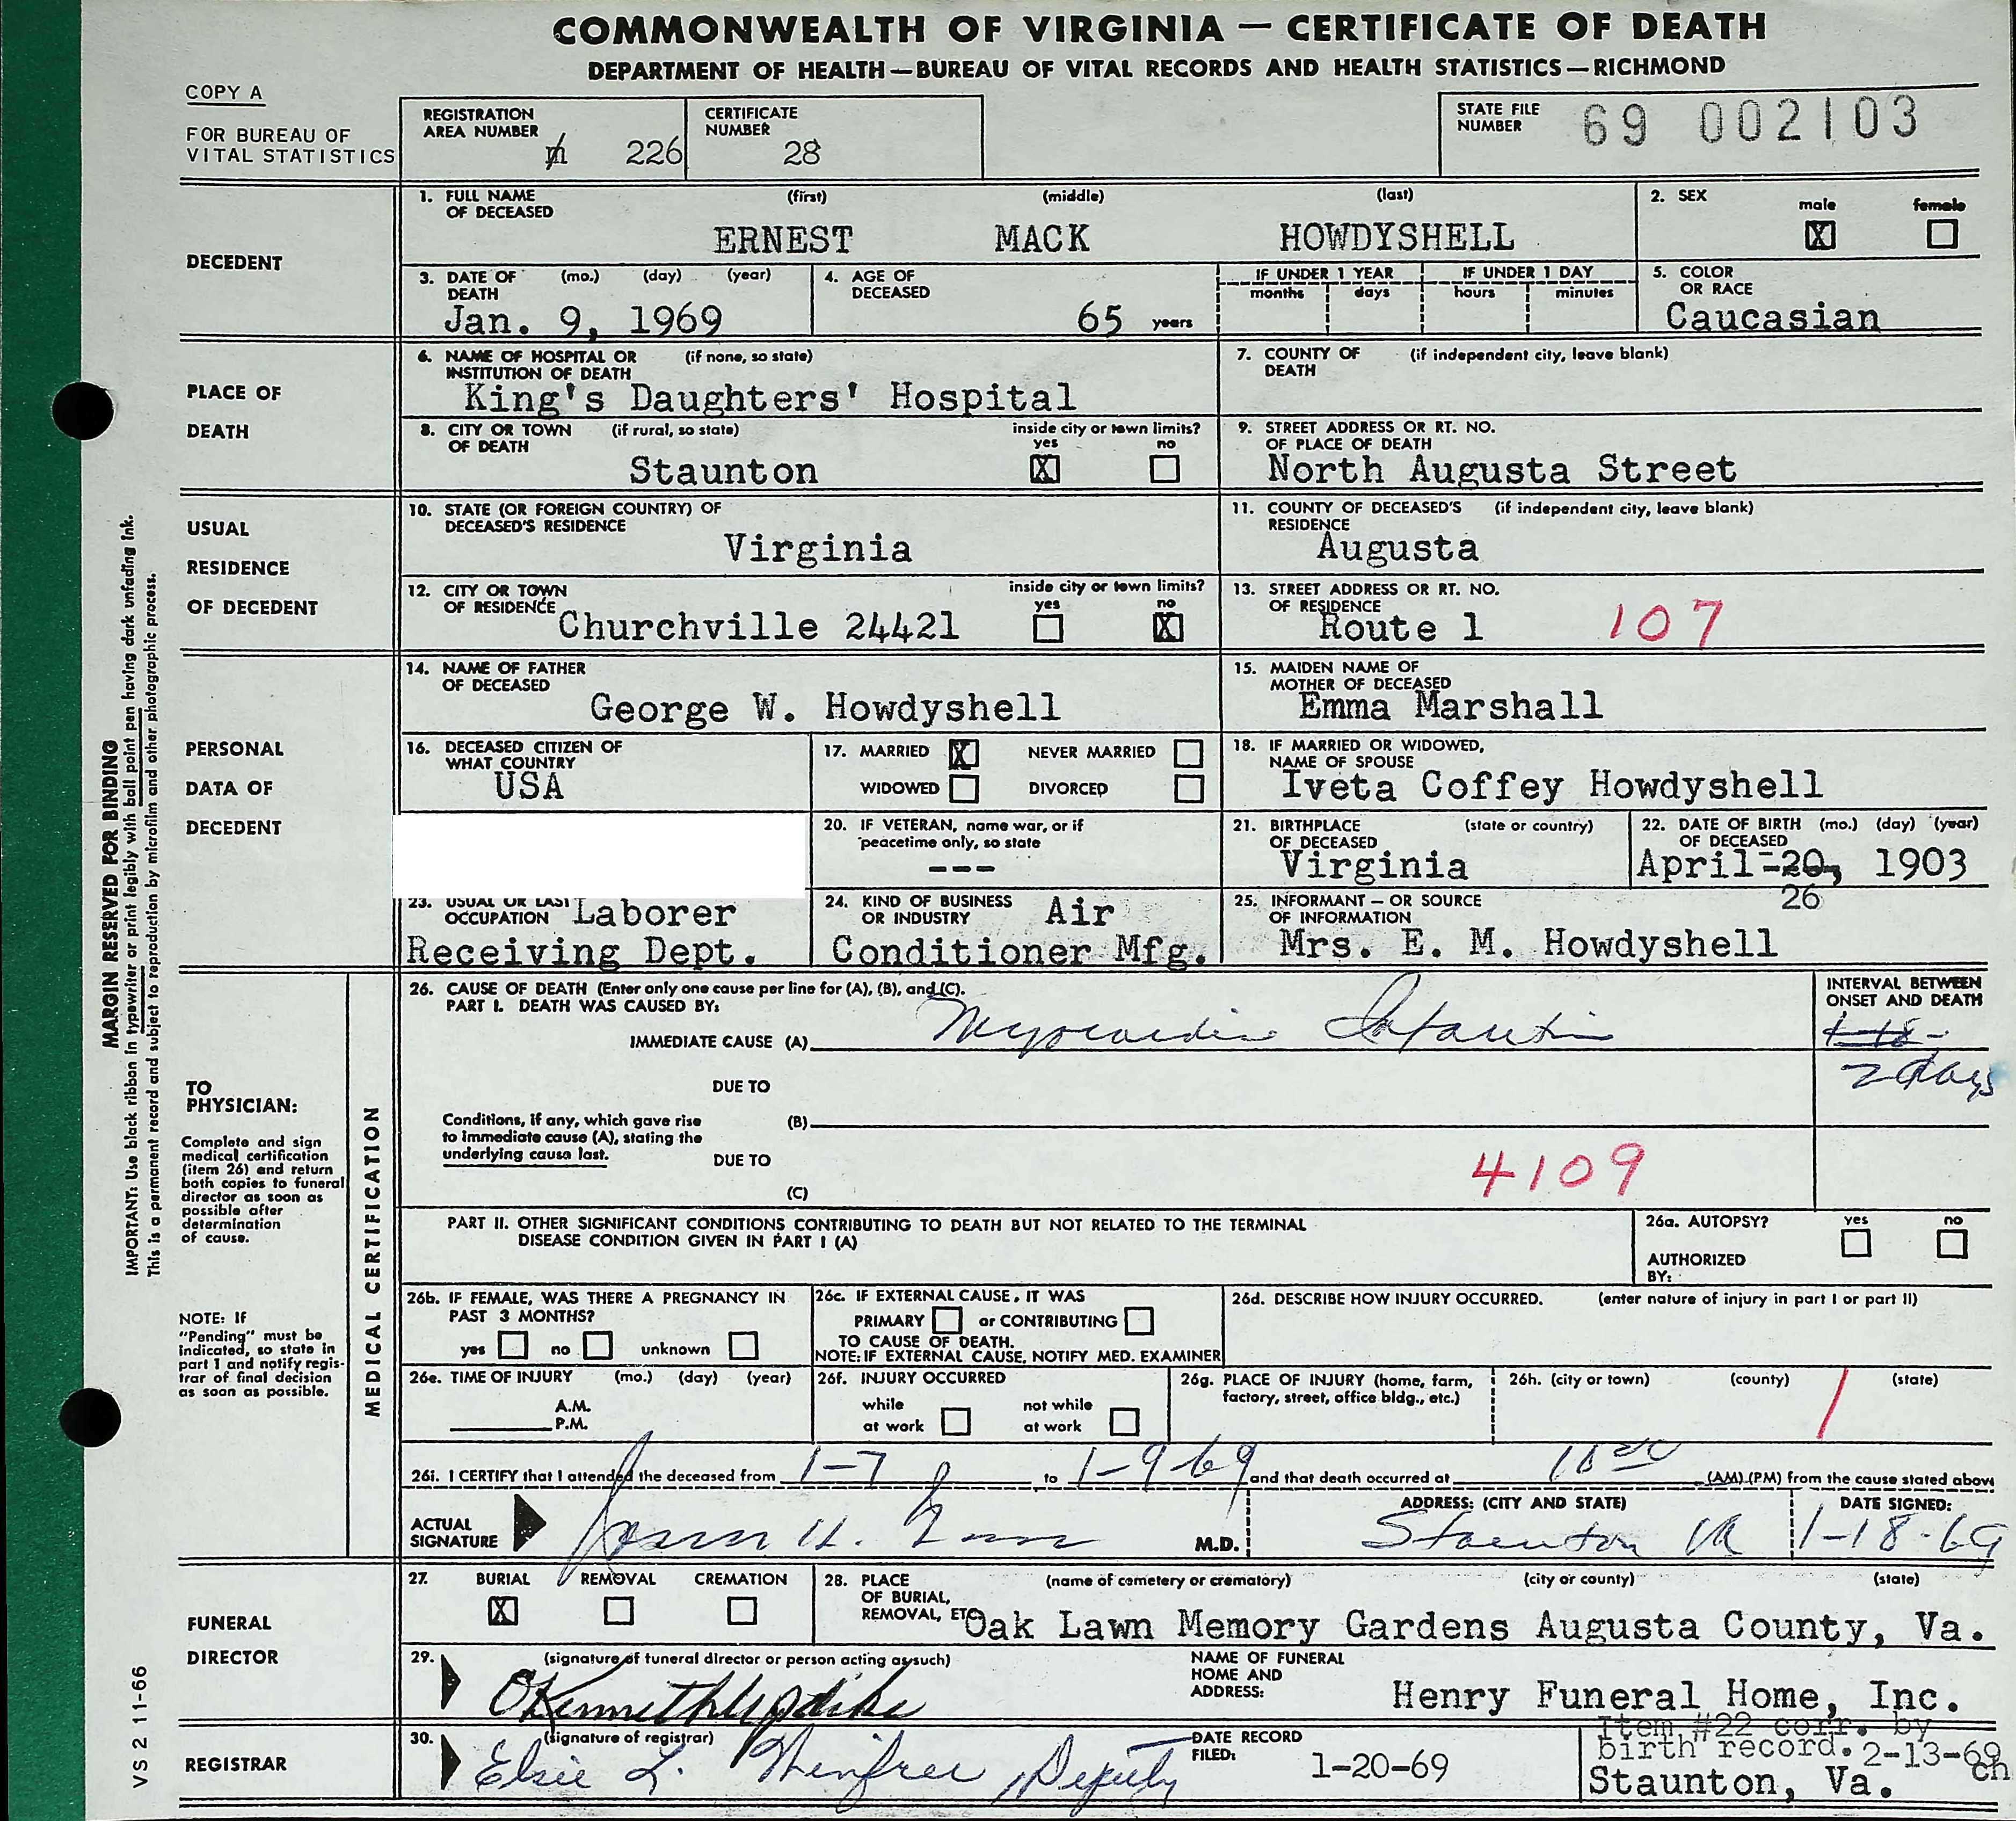 COMMONWEALTH OF VIRGINIA — CERTIFICATE OF DEATH
DEPARTMENT OF HEALTH—BUREAU OF VITAL RECORDS AND HEALTH STATISTICS—RICHMOND
COPY A
FOR BUREAU OF
VITAL STATISTICS
REGISTRATION
AREA NUMBER
226
CERTIFICATE
NUMBER
28
STATE FILE
NUMBER
69 002103
DECEDENT
1. FULL NAME (first) (middle) (last)
OF DECEASED
ERNEST MACK HOWDYSHELL
2. SEX male female
X
3. DATE OF (mo.) (day) (year)
DEATH
Jan. 9, 1969
4. AGE OF
DECEASED
65 years
IF UNDER 1 YEAR IF UNDER 1 DAY
months days hours minutes
5. COLOR
OR RACE
Caucasian
PLACE OF
DEATH
6. NAME OF HOSPITAL OR (if none, so state)
INSTITUTION OF DEATH
King's Daughters' Hospital
7. COUNTY OF (if independent city, leave blank)
DEATH
8. CITY OR TOWN (if rural, so state) inside city or town limits?
OF DEATH yes no
Staunton X
9. STREET ADDRESS OR RT. NO.
OF PLACE OF DEATH
North Augusta Street
USUAL
RESIDENCE
OF DECEDENT
10. STATE (OR FOREIGN COUNTRY) OF
DECEASED'S RESIDENCE
Virginia
11. COUNTY OF DECEASED'S (if independent city, leave blank)
RESIDENCE
Augusta
12. CITY OR TOWN inside city or town limits?
OF RESIDENCE yes no
Churchville 24421 X
13. STREET ADDRESS OR RT. NO.
OF RESIDENCE
Route 1 107
PERSONAL
DATA OF
DECEDENT
14. NAME OF FATHER
OF DECEASED
George W. Howdyshell
15. MAIDEN NAME OF
MOTHER OF DECEASED
Emma Marshall
16. DECEASED CITIZEN OF
WHAT COUNTRY
USA
17. MARRIED X NEVER MARRIED
WIDOWED DIVORCED
18. IF MARRIED OR WIDOWED,
NAME OF SPOUSE
Iveta Coffey Howdyshell
20. IF VETERAN, name war, or if
peacetime only, so state
---
21. BIRTHPLACE (state or country)
OF DECEASED
Virginia
22. DATE OF BIRTH (mo.) (day) (year)
OF DECEASED
April 20, 1903
26
23. USUAL OR LAST
OCCUPATION Laborer
Receiving Dept.
24. KIND OF BUSINESS
OR INDUSTRY Air
Conditioner Mfg.
25. INFORMANT — OR SOURCE
OF INFORMATION
Mrs. E. M. Howdyshell
MARGIN RESERVED FOR BINDING
IMPORTANT: Use black ribbon in typewriter or print legibly with ball point pen having dark unfading ink.
This is a permanent record and subject to reproduction by microfilm and other photographic process.
VS 2 11-66
TO
PHYSICIAN:
Complete and sign
medical certification
(item 26) and return
both copies to funeral
director as soon as
possible after
determination
of cause.
NOTE: If
"Pending" must be
indicated, so state in
part 1 and notify regis-
trar of final decision
as soon as possible.
MEDICAL CERTIFICATION
26. CAUSE OF DEATH (Enter only one cause per line for (A), (B), and (C).
PART I. DEATH WAS CAUSED BY:
IMMEDIATE CAUSE (A) Myocardial Infarction
INTERVAL BETWEEN
ONSET AND DEATH
2 days
DUE TO
Conditions, if any, which gave rise (B)
to immediate cause (A), stating the
underlying cause last. DUE TO
(C)
4109
PART II. OTHER SIGNIFICANT CONDITIONS CONTRIBUTING TO DEATH BUT NOT RELATED TO THE TERMINAL
DISEASE CONDITION GIVEN IN PART I (A)
26a. AUTOPSY? yes no
AUTHORIZED
BY:
26b. IF FEMALE, WAS THERE A PREGNANCY IN
PAST 3 MONTHS?
yes no unknown
26c. IF EXTERNAL CAUSE, IT WAS
PRIMARY or CONTRIBUTING
TO CAUSE OF DEATH.
NOTE: IF EXTERNAL CAUSE, NOTIFY MED. EXAMINER
26d. DESCRIBE HOW INJURY OCCURRED. (enter nature of injury in part I or part II)
26e. TIME OF INJURY (mo.) (day) (year)
A.M.
P.M.
26f. INJURY OCCURRED
while not while
at work at work
26g. PLACE OF INJURY (home, farm,
factory, street, office bldg., etc.)
26h. (city or town) (county) (state)
26i. I CERTIFY that I attended the deceased from 1-7 to 1-9-69 and that death occurred at (AM) (PM) from the cause stated above
ACTUAL
SIGNATURE
M.D.
ADDRESS: (CITY AND STATE)
Staunton Va
DATE SIGNED:
1-18-69
FUNERAL
DIRECTOR
27. BURIAL REMOVAL CREMATION
X
28. PLACE (name of cemetery or crematory) (city or county) (state)
OF BURIAL,
REMOVAL, ETC
Oak Lawn Memory Gardens Augusta County, Va.
29. (signature of funeral director or person acting as such)
O Kenneth Updike
NAME OF FUNERAL
HOME AND
ADDRESS:
Henry Funeral Home, Inc.
Staunton, Va.
REGISTRAR
30. (signature of registrar)
Elsie L. Winfree, Deputy
DATE RECORD
FILED:
1-20-69
Item #22 corr. by
birth record. 2-13-69
ch